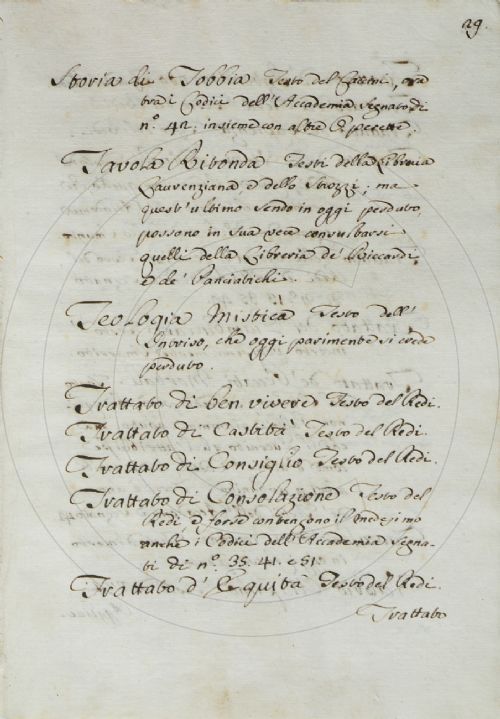 29.
Storia di Tobbia Testo del ora
tra i Codici dell' Accademia segnato di
n.° 42. insieme con altre Operette.
Tavola Ritonda Testi della Libreria
Laurenziana e dello Strozzi; ma
quest'ultimo sendo in oggi perduto
possono in sua vece consultarsi
quelli della Libreria de' Riccardi
e de' Panciatichi.
Teologia Mistica Testo dell'
Intriso, che oggi parimente si crede
perduto.
Trattato di ben vivere Testo del Redi.
Trattato di Castità Testo del Redi.
Trattato di Consiglio Testo del Redi.
Trattato di Consolazione Testo del
Redi, e forse contengono il medesimo
anche i Codici dell' Accademia segna-
ti di n.° 35. 41. e 51.
Trattato d' Equità Testo del Redi.
Trattato